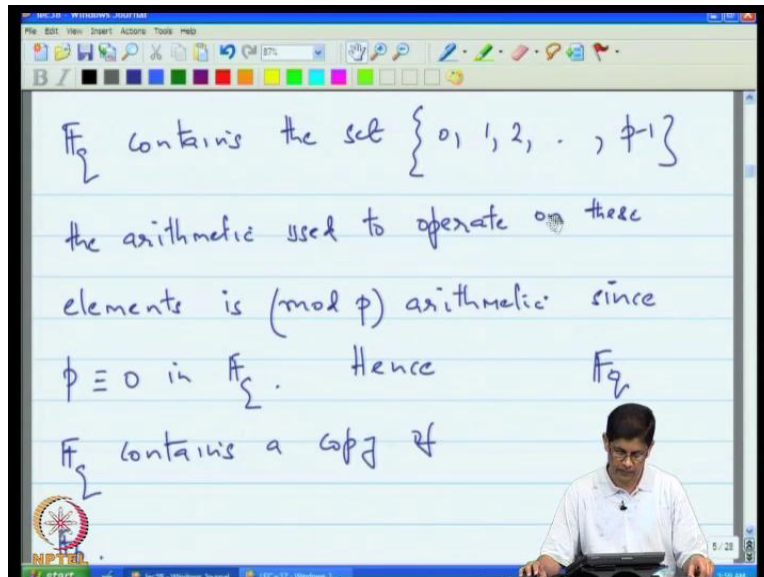 lec38 - Windows Journal
File Edit View Insert Actions Tools Help
87%
B I
𝔽q contains the set { 0, 1, 2, . , p-1}
the arithmetic used to operate on these
elements is (mod p) arithmetic since
p ≡ 0 in 𝔽q. Hence 𝔽q
𝔽q contains a copy of
NPTEL
5 / 28
start